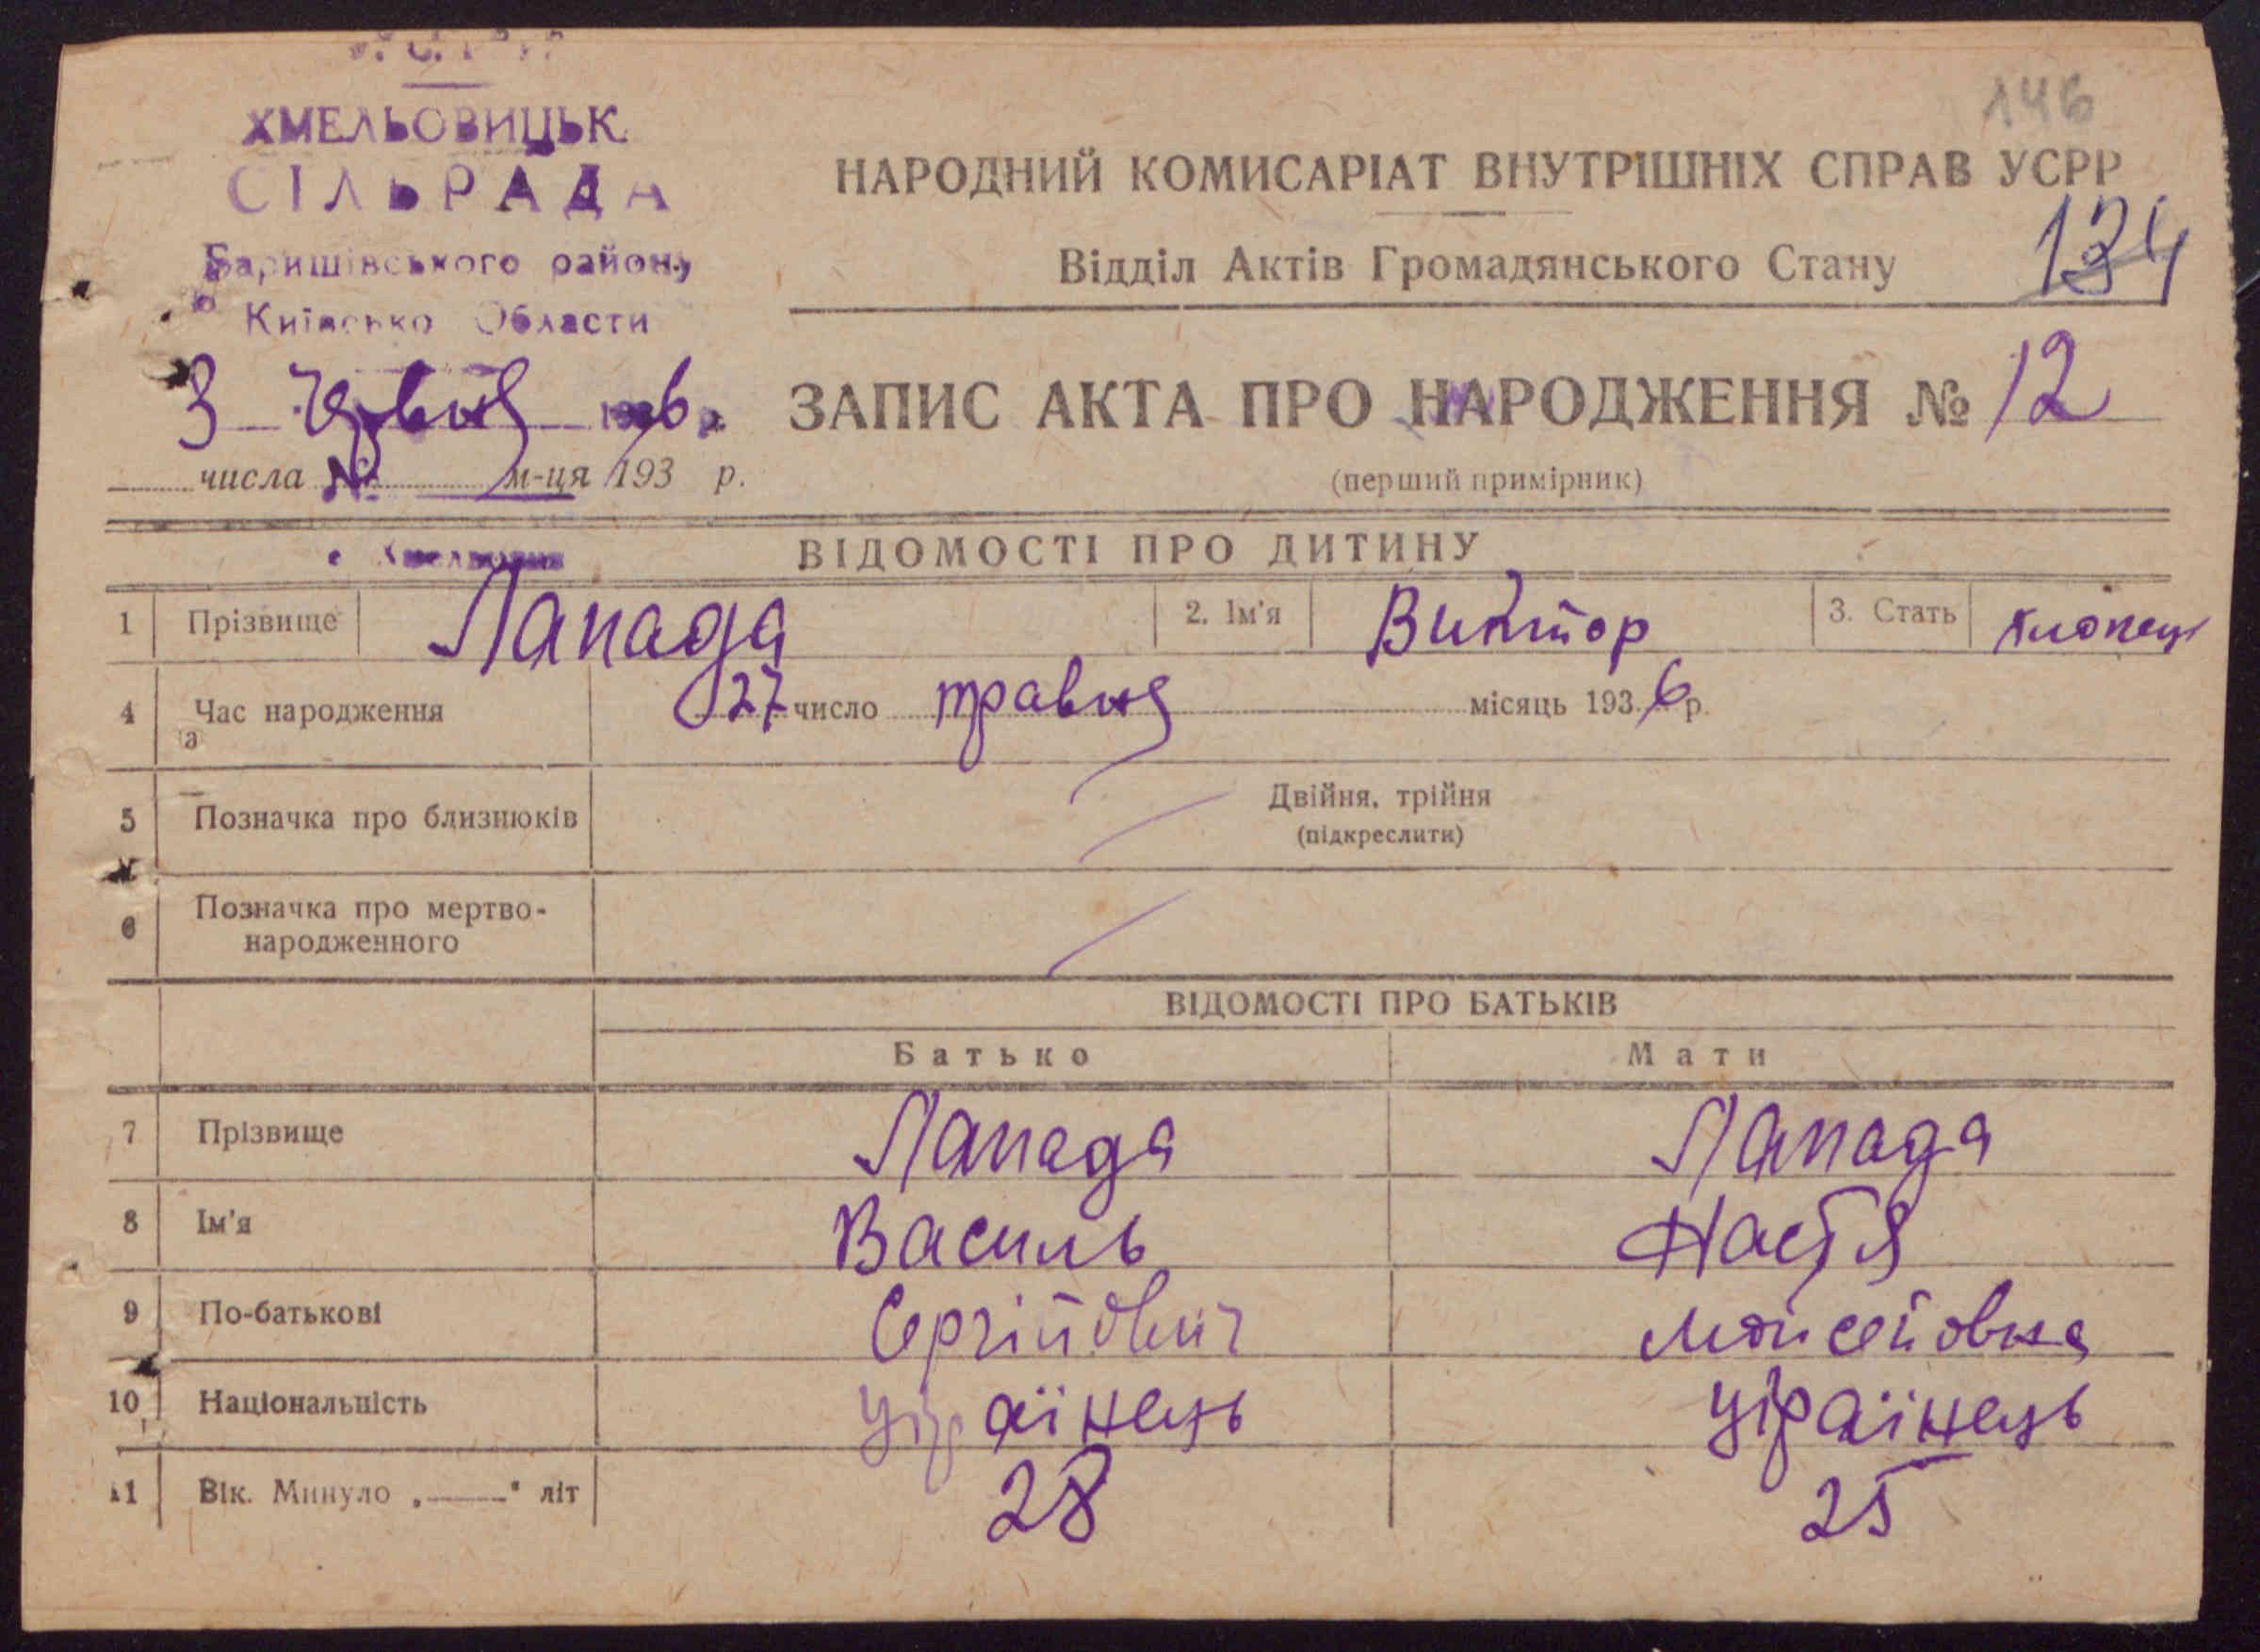 ХМЕЛЬОВИЦЬК
СІЛЬРАДА
Баришівського району
Київсько Области
3 червня 1936 р.
числа № м-ця 193 р.
146
НАРОДНИЙ КОМИСАРІАТ ВНУТРІШНІХ СПРАВ УСРР
Відділ Актів Громадянського Стану
134
ЗАПИС АКТА ПРО НАРОДЖЕННЯ № 12
(перший примірник)
ВІДОМОСТІ ПРО ДИТИНУ
1 Прізвище Лапада 2. Ім'я Виктор 3. Стать хлопець
4 Час народження 27 число травня місяць 1936 р.
5 Позначка про близнюків Двійня, трійня
(підкреслити)
6 Позначка про мертво-
народженного
ВІДОМОСТІ ПРО БАТЬКІВ
Батько Мати
7 Прізвище Лапада Лапада
8 Ім'я Василь Настя
9 По-батькові Сергійович Мойсейовна
10 Національність українець українець
11 Вік. Минуло „——" літ 28 25